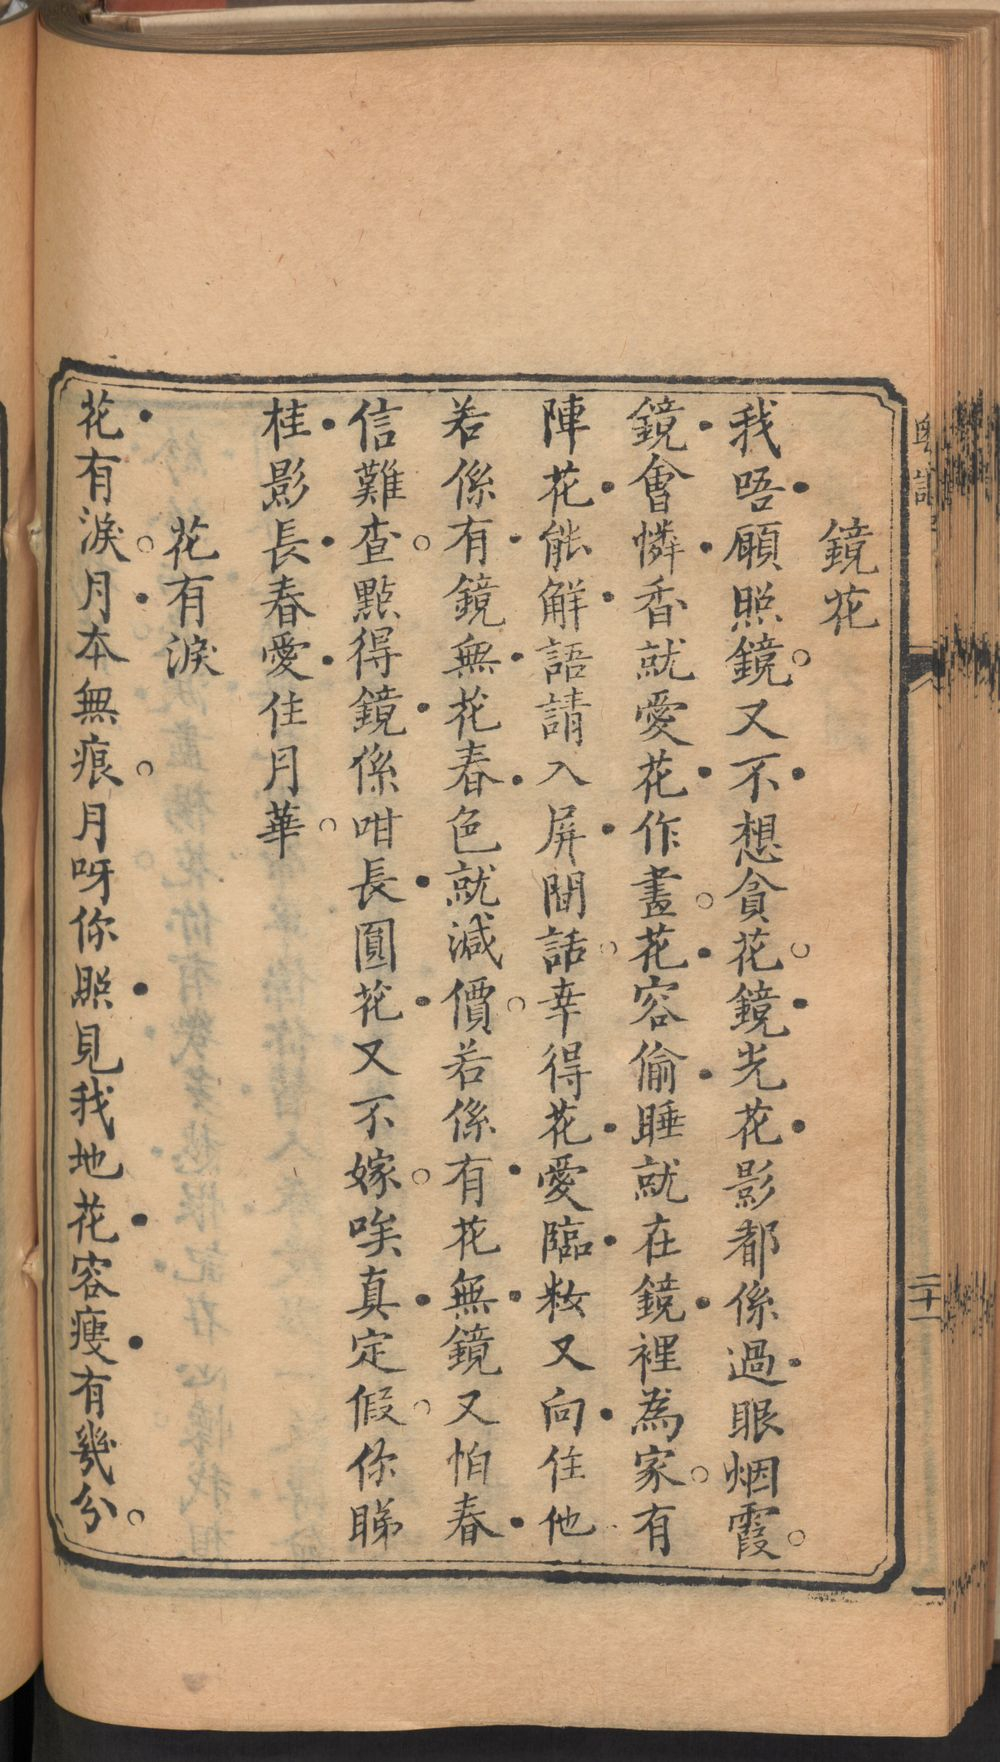 鏡花
我唔願照鏡○又不想貪花○鏡光花影都係過眼烟霞○
鏡會憐香就愛花作畫○花容偷睡就在鏡裡為家○有
陣花能解語請入屏間話○幸得花愛臨粧又向住他
若係有鏡無花春色就減價○若係有花無鏡又怕春
信難查○點得鏡係咁長圓花又不嫁○唉真定假○你睇
桂影長春愛住月華○
花有淚
花有淚○月本無痕○月呀你照見我地花容瘦有幾分○
二十一